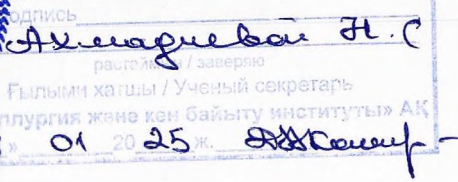 одпись
Ахмадиевой Н. С
растаймын / заверяю
Ғылыми хатшы / Ученый секретарь
ллургия және кен байыту институты» АҚ
» 01 20 25 ж.